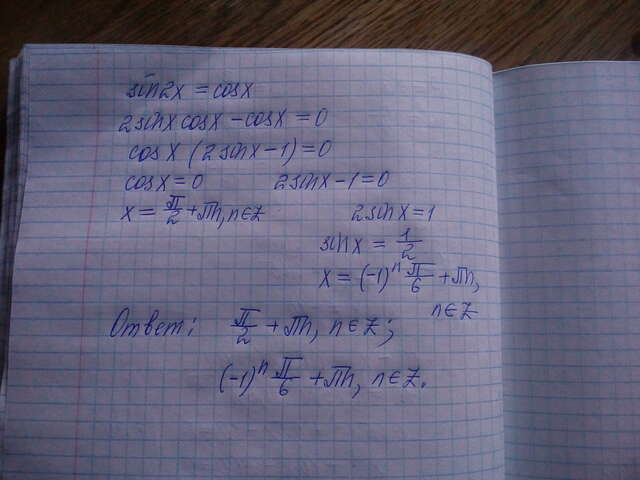 sin2x = cosx
2sinx cosx - cosx = 0
cosx (2sinx - 1) = 0
cosx = 0    2sinx - 1 = 0
x = π/2 + πn, n∈Z    2sinx = 1
sinx = 1/2
x = (-1)ⁿ π/6 + πn,
n∈Z
Ответ: π/2 + πn, n∈Z;
(-1)ⁿ π/6 + πn, n∈Z.